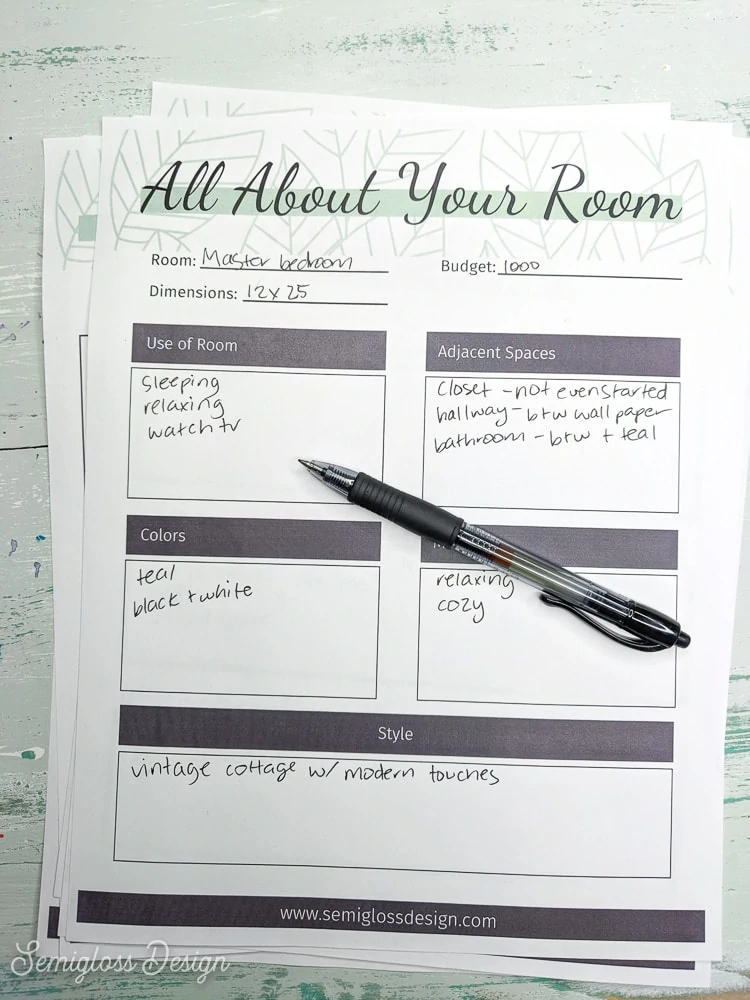 All About Your Room
Room: Master bedroom
Budget: 1000
Dimensions: 12x25
Use of Room
sleeping
relaxing
watch tv
Adjacent Spaces
closet - not even started
hallway - b+w wall paper
bathroom - b+w + teal
Colors
teal
black + white
relaxing
cozy
Style
vintage cottage w/ modern touches
www.semiglossdesign.com
Semigloss Design